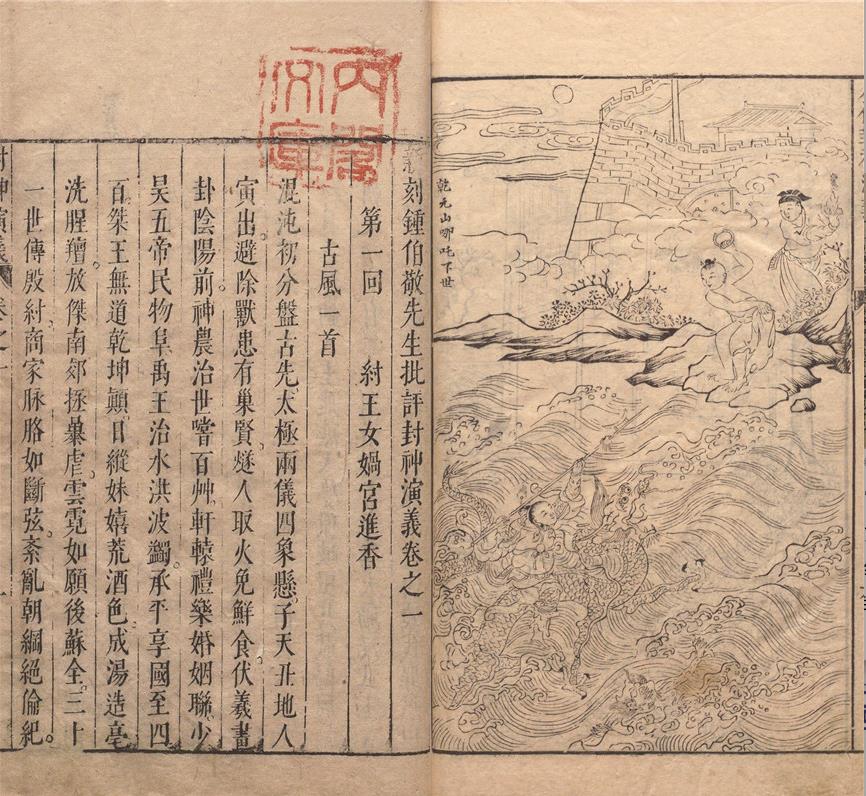 乾元山哪吒下世
内閣
文庫
新刻鍾伯敬先生批評封神演義卷之一
第一回 紂王女媧宮進香
古風一首
混沌初分盤古先。太極兩儀四象懸。子天丑地人
寅出。避除獸患有巢賢。燧人取火免鮮食。伏羲畫
卦陰陽前。神農治世嘗百艸。軒轅禮樂婚姻聯。少
昊五帝民物阜。禹王治水洪波蠲。承平享國至四
百。桀王無道乾坤顛。日縱妹嬉荒酒色。成湯造亳
洗腥羶。放傑南郊拯暴虐。雲霓如願後蘇全。三十
一世傳殷紂。商家脉胳如斷弦。紊亂朝綱絕倫紀。
封神演義 卷之一